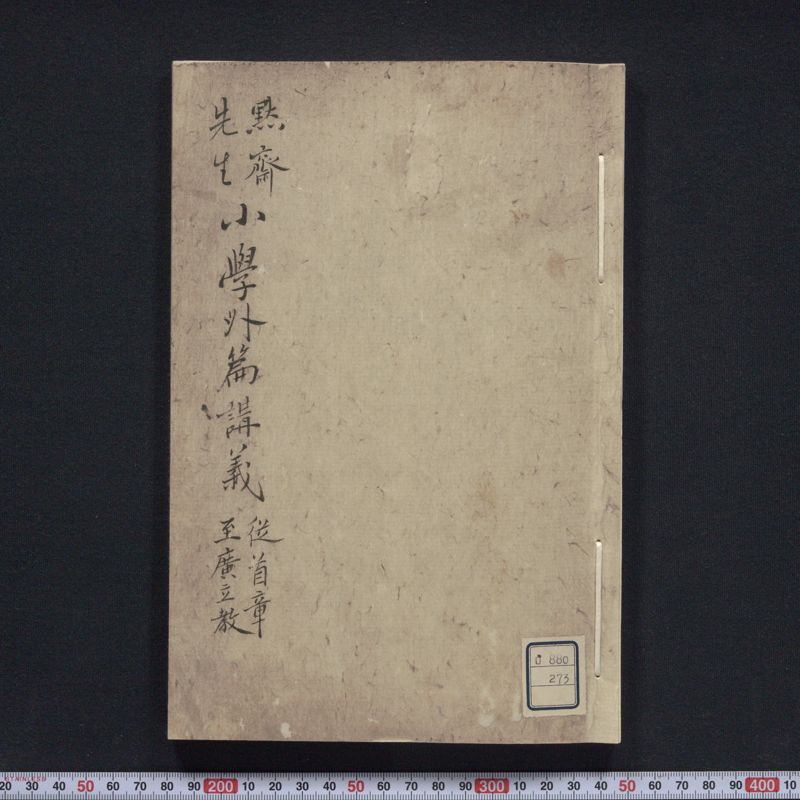 黙齋
先生
小學外篇講義
從首章
至廣立教
U 880
273
STAINLESS
20 30 40 50 60 70 80 90 200 10 20 30 40 50 60 70 80 90 300 10 20 30 40 50 60 70 80 90 400 10